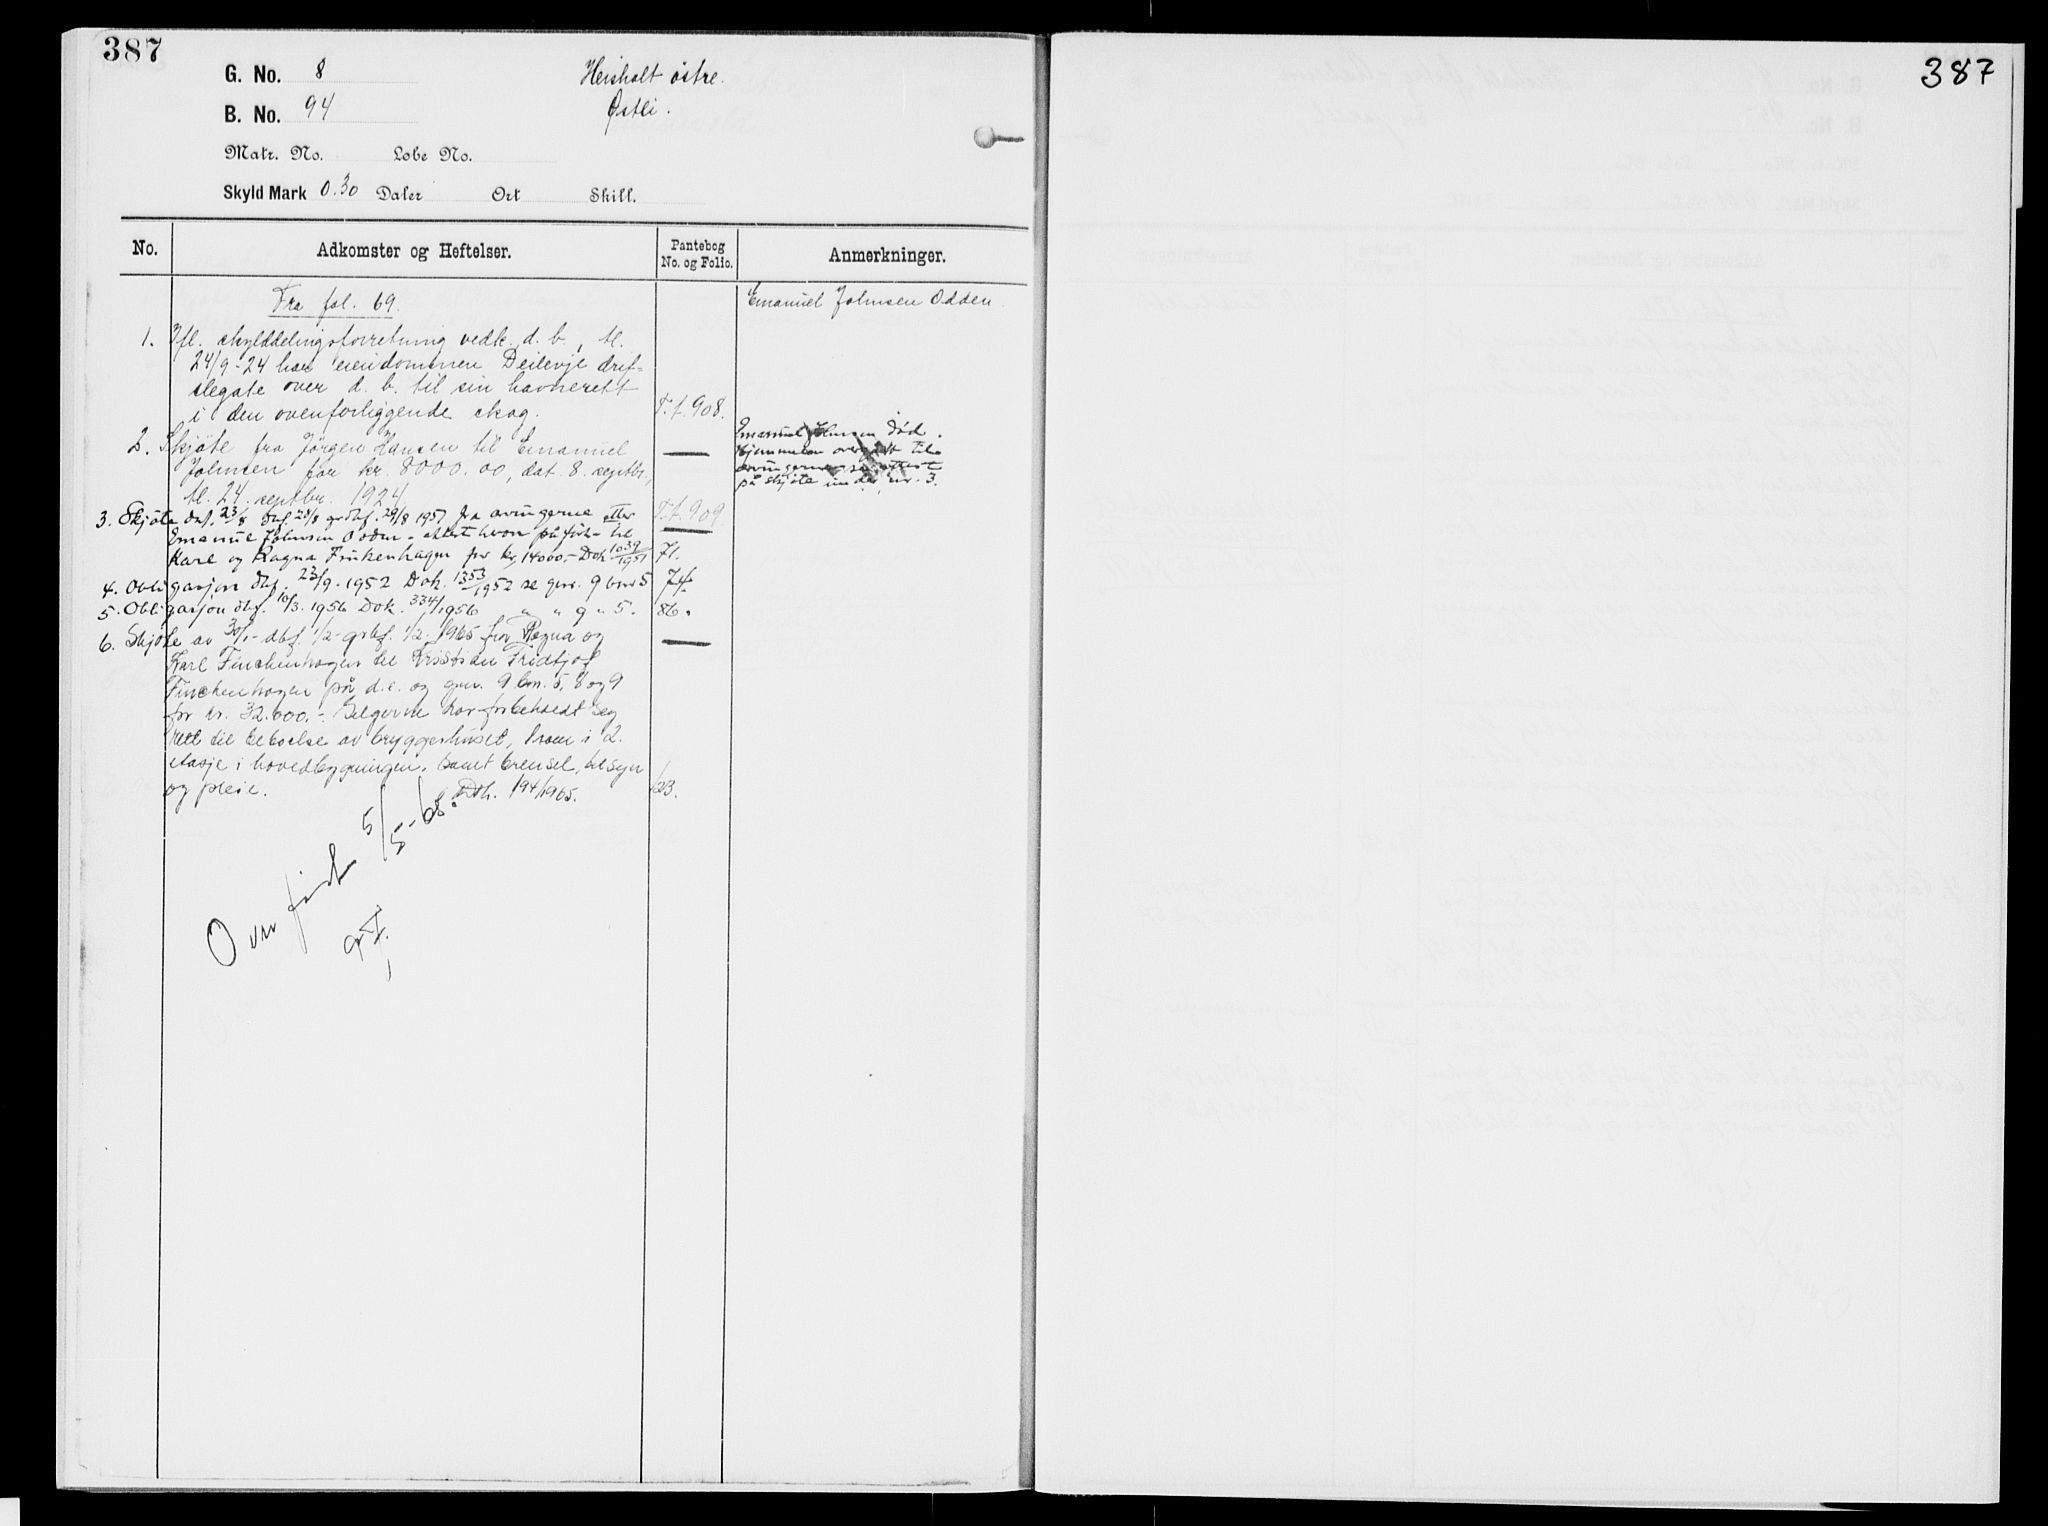 387
G. No. 8 Heisholt østre.
B. No. 94 Østli.
Matr. No. Løbe No.
Skyld Mark 0.30 Daler Ort Skill.
No. Adkomster og Heftelser. Pantebog No. og Folio. Anmerkninger.
Fra fol. 69. Emanuel Johnsen Odden.
1. Ifl. skylddelingsforretning vedk. d. b., tl.
24/9-24 har eiendommen Deilevje drif-
slegate over d. b. til sin havnerett
i den ovenforliggende skog. T.f. 908.
2. Skjøte fra Jörgen Hansen til Emanuel
Johnsen for kr. 8000.00, dat. 8. septbr.,
tl. 24. septbr. 1924 T.f. 909
Emanuel Johnsen død.
Hjemmelen overgått til
arvingerne, se attest
på skjøte under nr. 3.
3. Skjøte dat. 23/8 dbf. 28/8 grbf. 29/8 1951 fra arvingerne etter
Emanuel Johnsen Odden - attest herom påført - til
Karl og Ragna Finkenhagen for kr. 14000.- Dok 1039/1951 71.
4. Obligasjon dbf. 23/9. 1952 Dok. 1353/1952 se gnr. 9 bnr 5 74.
5. Obligasjon dbf. 10/3. 1956 Dok. 334/1956 " " 9 " 5. 86.
6. Skjøte av 30/1- dbf. 1/2- grbf. 1/2- 1965 fra Ragna og
Karl Finckenhagen til Kristian Fridtjof
Finckenhagen på d.e. og gnr. 9 bnr. 5, 8 og 9
for kr. 32.000.-. Selgerne har forbeholdt seg
rett til beboelse av bryggerhuset, 1 rom i 2.
etasje i hovedbygningen, samt brensel, tilsyn
og pleie. Dok. 194/1965. 123.
Overført 5/5-68.
387